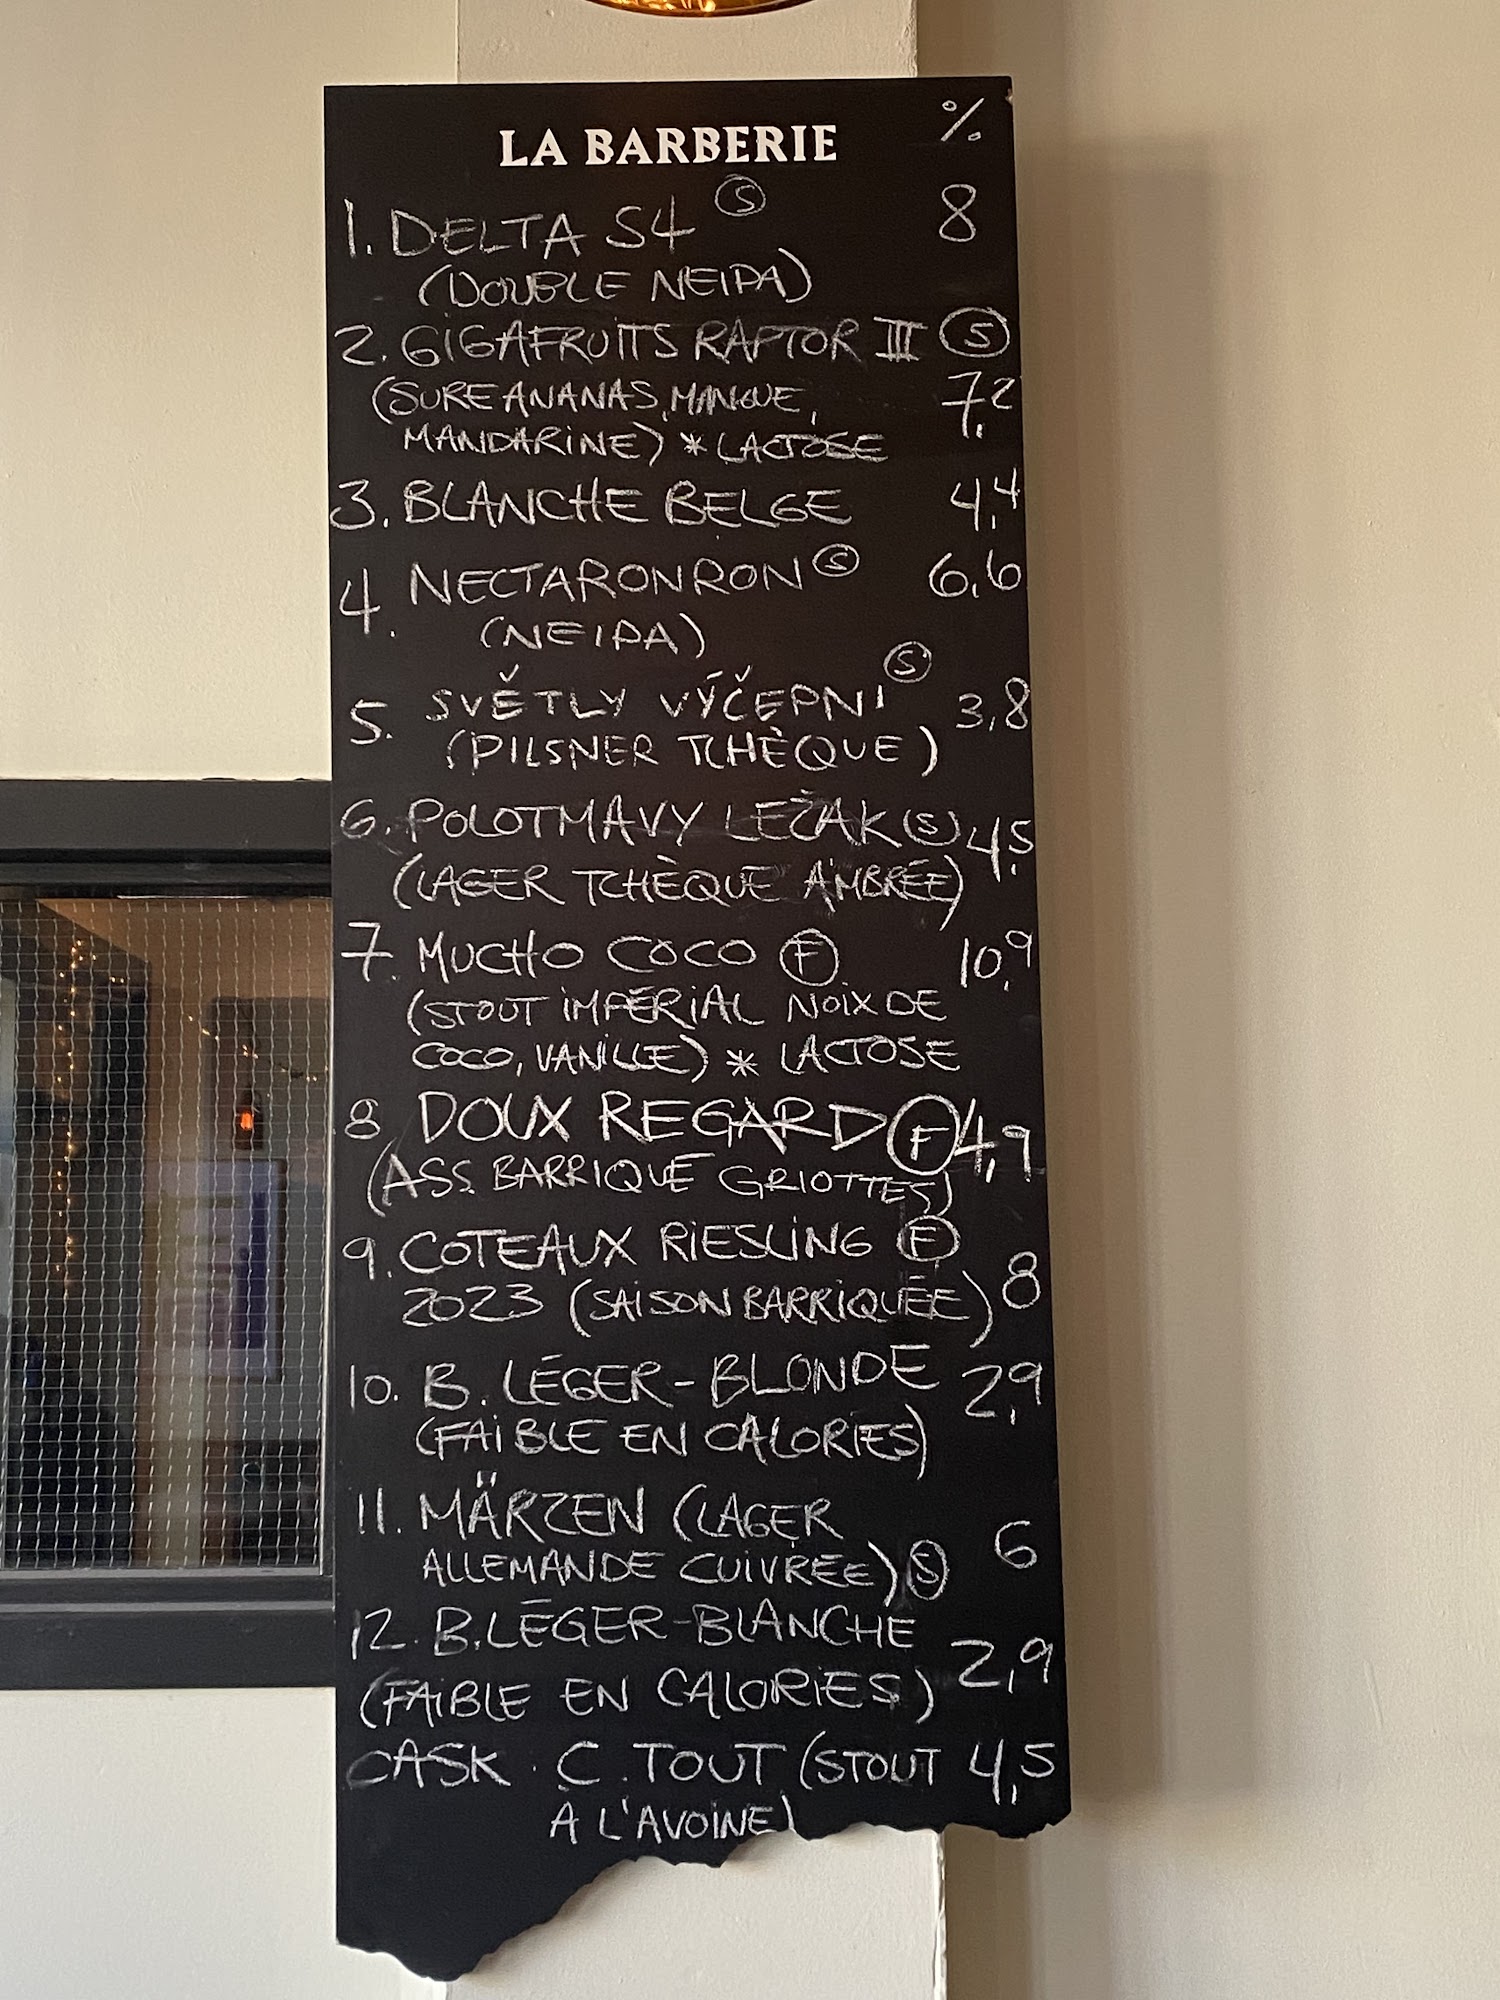 LA BARBERIE %
1. DELTA S4 Ⓢ 8
(DOUBLE NEIPA)
2. GIGAFRUITS RAPTOR III Ⓢ
(SURE ANANAS, MANGUE, 7,2
MANDARINE) * LACTOSE
3. BLANCHE BELGE 4,4
4. NECTARONRON Ⓢ 6,6
(NEIPA)
5. SVĚTLY VÝČEPNI Ⓢ 3,8
(PILSNER TCHÈQUE)
6. POLOTMAVY LEŽAK Ⓢ 4,5
(LAGER TCHÈQUE AMBRÉE)
7. MUCHO COCO Ⓕ 10,9
(STOUT IMPÉRIAL NOIX DE
COCO, VANILLE) * LACTOSE
8 DOUX REGARD Ⓕ 4,9
(ASS. BARRIQUE GRIOTTES)
9. COTEAUX RIESLING Ⓕ
2023 (SAISON BARRIQUÉE) 8
10. B. LÉGER - BLONDE 2,9
(FAIBLE EN CALORIES)
11. MÄRZEN (LAGER
ALLEMANDE CUIVRÉE) Ⓢ 6
12. B. LÉGER - BLANCHE
(FAIBLE EN CALORIES) 2,9
CASK. C. TOUT (STOUT 4,5
A L'AVOINE)